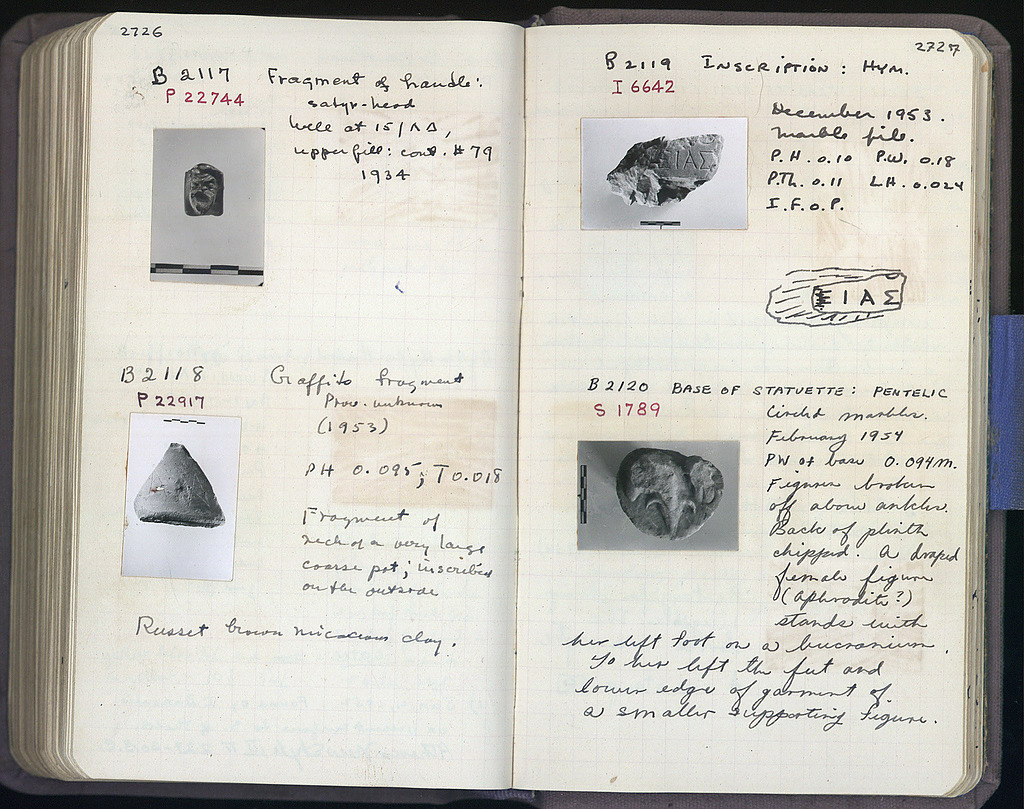 2726
B 2117 Fragment of handle:
P 22744
satyr-head
Well at 15/ΛΔ,
upper fill: cont. #79
1934
B 2118 Graffito fragment
P 22917
Prov. unknown
(1953)
PH 0.095; T 0.018
Fragment of
neck of a very large
coarse pot; inscribed
on the outside
Russet brown micaceous clay.
2727
B 2119 INSCRIPTION: HYM.
I 6642
December 1953.
Marble pile.
P.H. 0.10 P.W. 0.18
P.Th. 0.11 LH. 0.024
I.F.O.P.
ΕΙΑΣ
ΕΙΑΣ
B 2120 BASE OF STATUETTE: PENTELIC
S 1789
marbles.
February 1954
PW of base 0.094m.
Figures broken
off above ankles.
Back of plinth
chipped. A draped
female figure
(Aphrodite?)
stands with
her left foot on a bucranium.
To her left the feet and
lower edge of garment of
a smaller supporting figure.